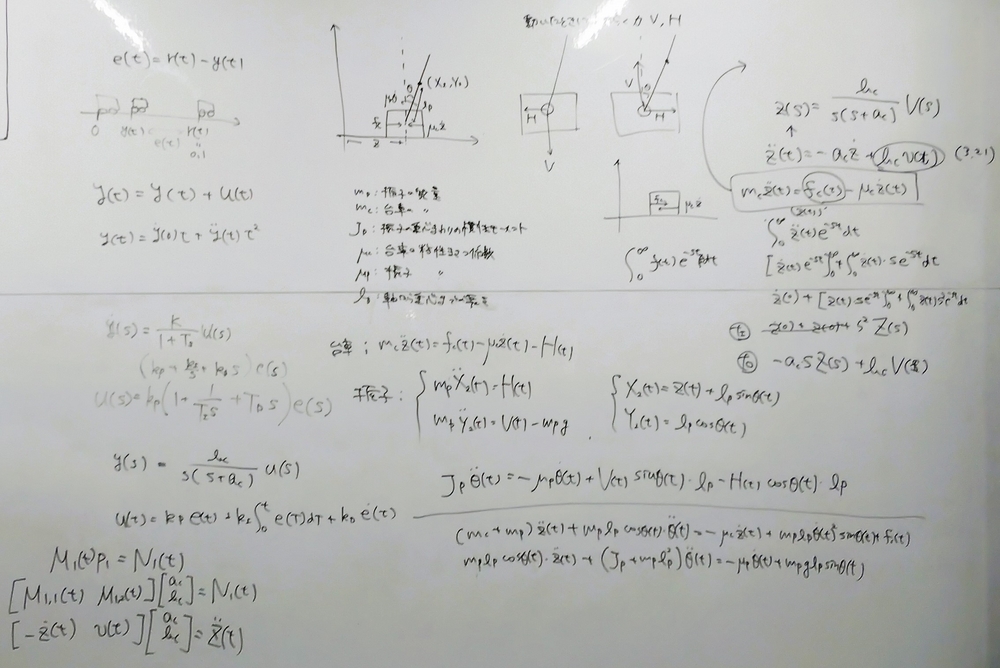 e(t) = r(t) - y(t)
0 y(t) e(t) r(t)
0.1
y(t) = y(t) + u(t)
y(t) = ẏ(0)t + ÿ(t)t²
(X₂, Y₂)
lp
fc
μcż
z
V, H
H
V
V
θ
H
fc
μcż
mp : 振子の質量
mc : 台車の 〃
Jp : 振子の重心まわりの慣性モーメント
μc : 台車の粘性 係数
μp : 振子 〃
lp : 軸から重心までの
∫₀^∞ f(t) e^{-st} dt
Z(s) = bc / s(s+ac) V(s)
↑
z̈(t) = -acż + bcv(t) (3.21)
mcz̈(t) = fc(t) - μcż(t)
∫₀^∞ z̈(t)e^{-st}dt
[ż(t)e^{-st}]₀^∞ + ∫₀^∞ ż(t)·se^{-st}dt
ż(t) + [z(t)se^{-st}]₀^∞ + ∫₀^∞ z(t)s²e^{-st}dt
左 ż(0) + z(0) + s² Z(s)
右 -acsZ(s) + bcV(s)
y(s) = K / 1+Ts u(s)
(kp + kI/s + kDs) e(s)
u(s) = kp(1 + 1/TIs + TDs) e(s)
y(s) = bc / s(s+ac) u(s)
u(t) = kp e(t) + kI ∫₀^t e(τ)dτ + kD ė(t)
M₁(t)p₁ = N₁(t)
[M₁,₁(t) M₁,₂(t)] [ac bc] = N₁(t)
[-ż(t) v(t)] [ac bc] = z̈(t)
台車 : mcz̈(t) = fc(t) - μcż(t) - H(t)
振子 : { mpẌ₂(t) = H(t) { X₂(t) = z(t) + lp sinθ(t)
mpŸ₂(t) = V(t) - mpg Y₂(t) = lp cosθ(t)
Jpθ̈(t) = -μpθ̇(t) + V(t) sinθ(t)·lp - H(t) cosθ(t)·lp
(mc + mp)z̈(t) + mplp cosθ(t)·θ̈(t) = -μcż(t) + mplpθ̇(t)² sinθ(t) + fc(t)
mplp cosθ(t)·z̈(t) + (Jp + mplp²)θ̈(t) = -μpθ̇(t) + mpglp sinθ(t)